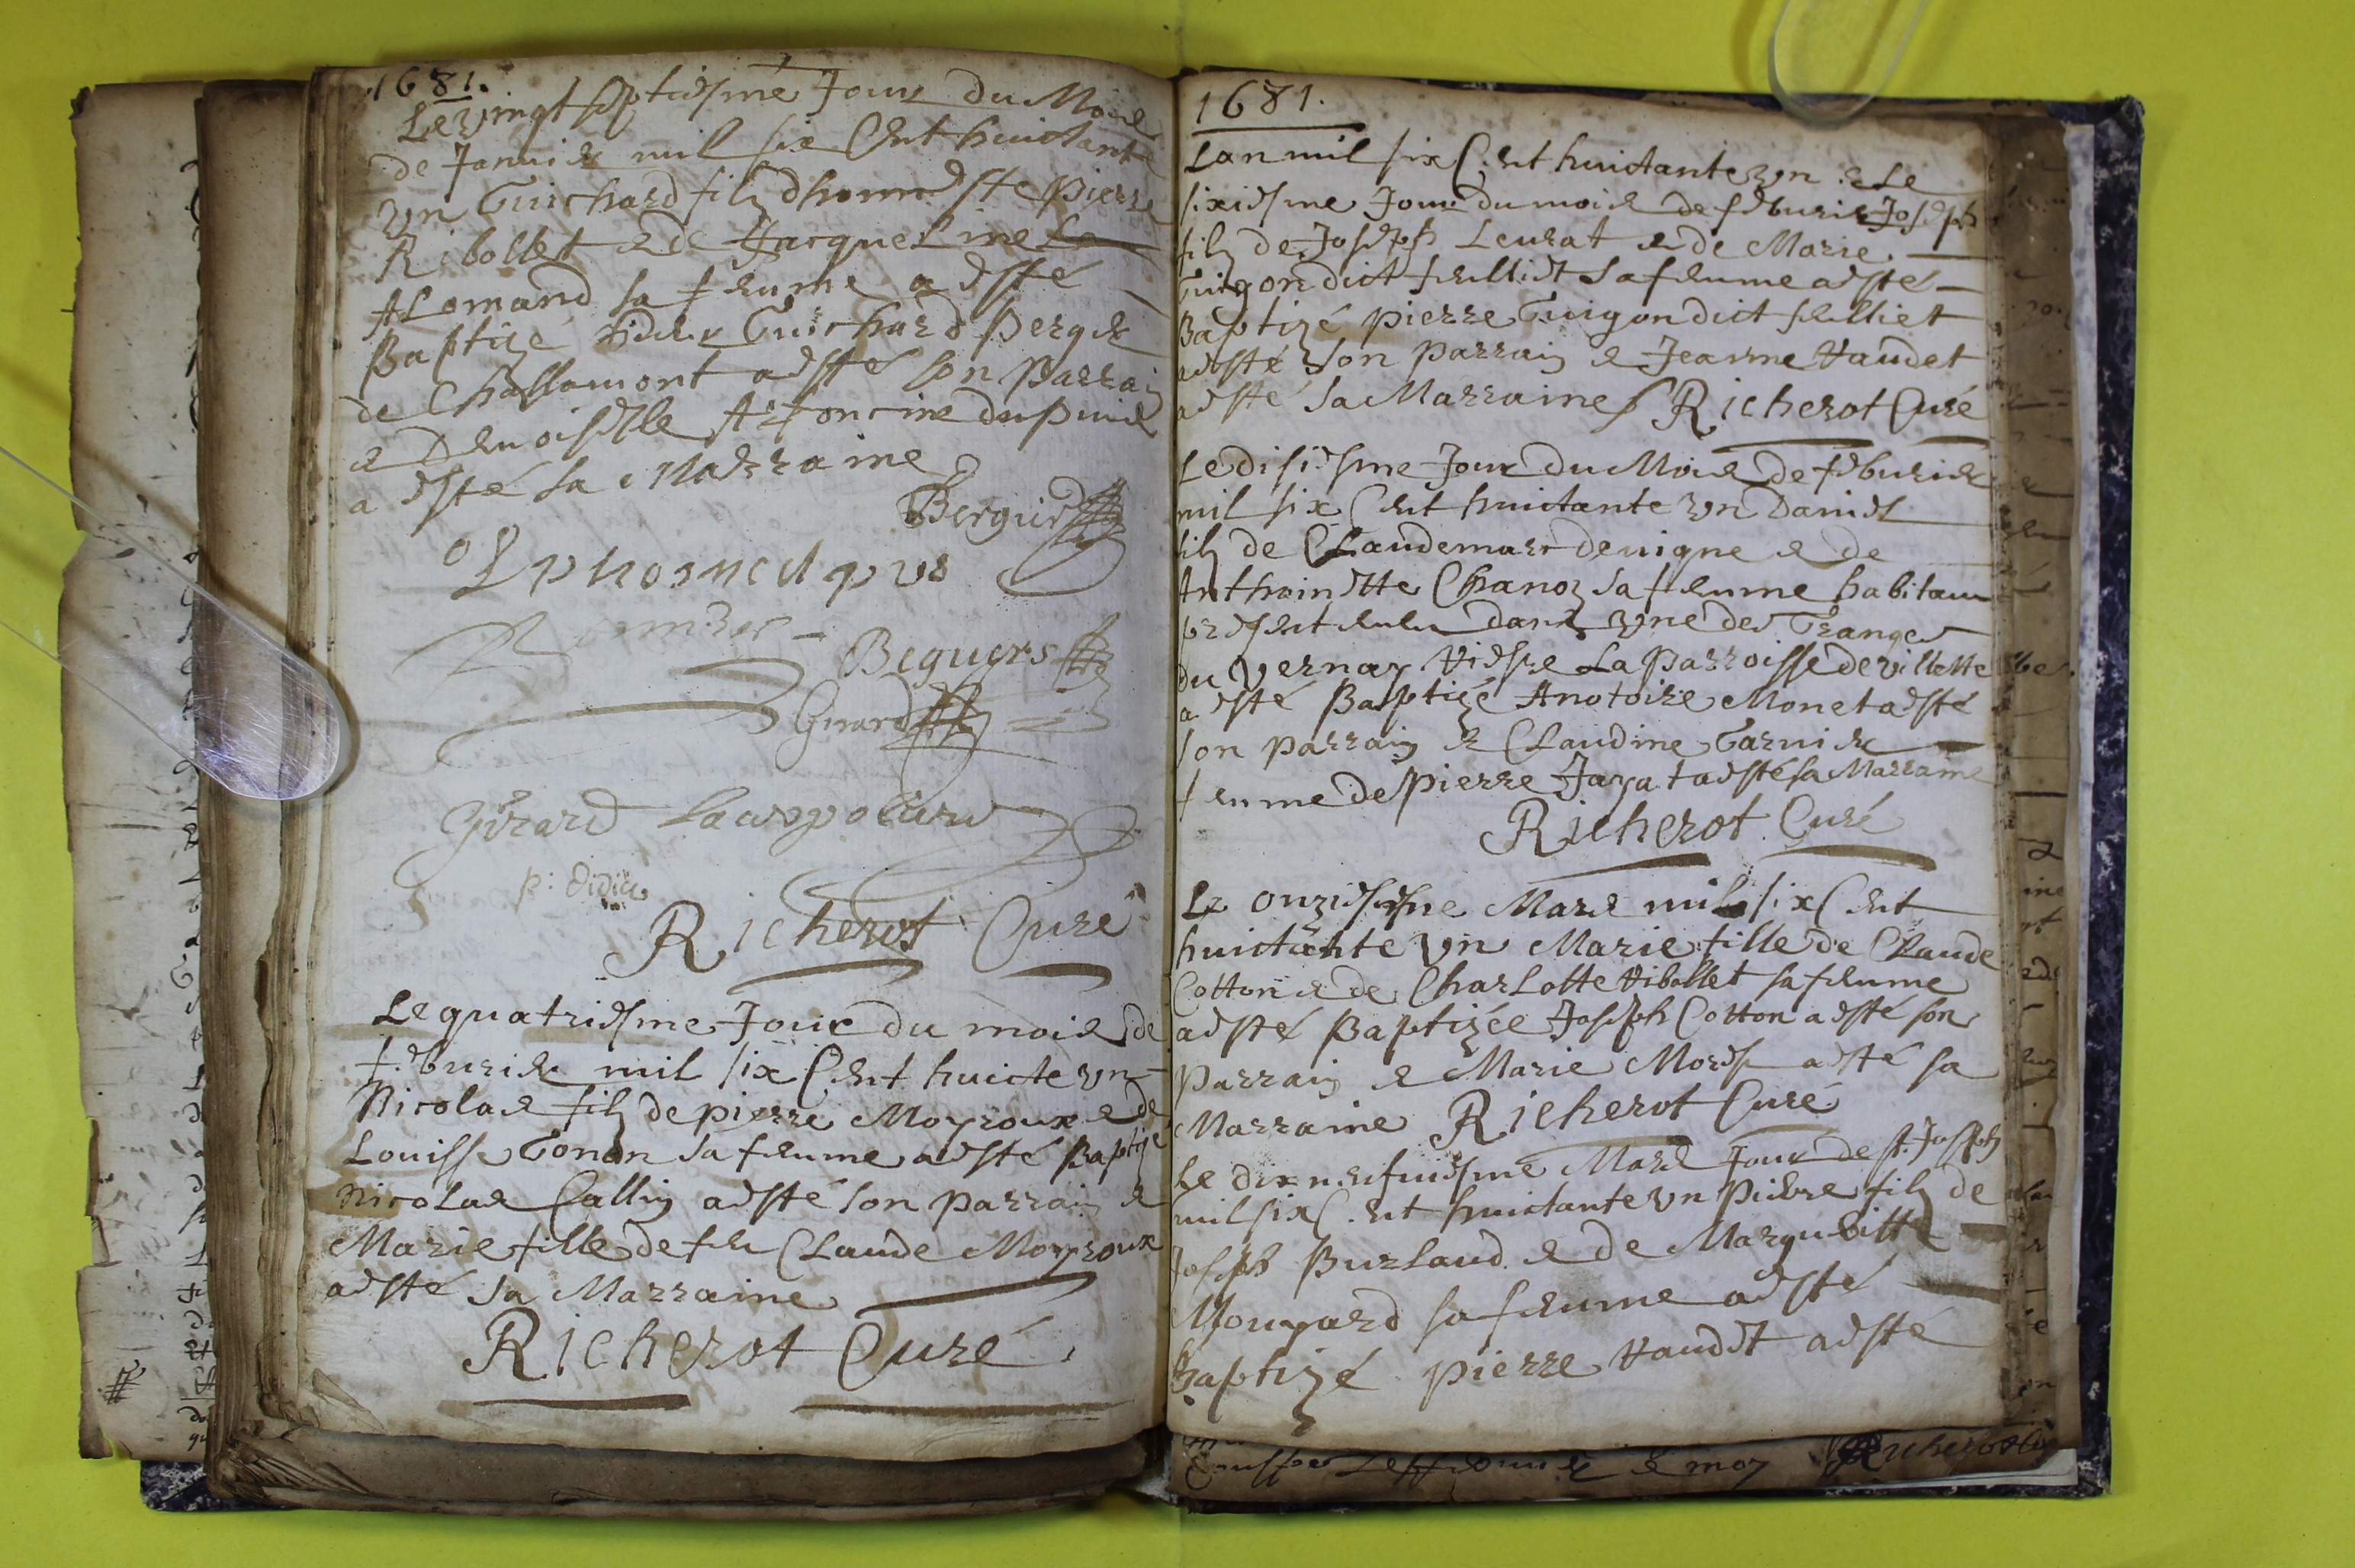 1681.
Le vingt septiesme Jour du Mois
de Januier mil six Cent huictante
vn Guichard filz dhonneste pierre
Ribollet & de Jacqueline La
ALomand sa femme a esté
Baptizé Guichard Berger
de Chassamont a esté son parrain
& Demoiselle Alfoncine dupuis
a esté sa Marraine
Bergier
Beguers
Girard
Girard
p: didier
Richerot Curé
Le quatriesme Jour du mois de
feburier mil six Cent huicte vn
Nicolas filz de pierre Moyroux & de
Louisse Gonon sa femme a esté Baptizé
Nicolas Callin a esté son parrain &
Marie fille de feu Claude Moyroux
a esté sa Marraine
Richerot Curé
1681.
Lan mil six Cent huictante vn & Le
sixiesme Jour du mois de feburier Joseph
filz de Joseph Leurat & de Marie
Guigon dict felliet sa femme a esté
Baptizé pierre Guigon dict felliet
a esté son parrain & Jeanne Vaudet
a esté sa Marraine Richerot Curé
Le disiesme Jour du Mois de feburier
mil six Cent huictante vn Daniel
filz de Claude marc deuigne & de
Anthoinette Chanoz sa femme habitans
presentement dans vne des Granges
du Vernay Riesre La parroisse de villette
a esté Baptizé Anotoire Monet a esté
son parrain & Claudine Garnier
femme de pierre Jayat a esté sa Marraine
Richerot Curé
Le onziesme Mars mil six Cent
huictante vn Marie fille de Claude
Cotton & de Charlotte Ribollet sa femme
a esté Baptizée Joseph Cotton a esté son
parrain & Marie Morel a esté sa
Marraine Richerot Curé
Le dix neufuiesme Mars Jour de st. Joseph
mil six Cent huictante vn pierre filz de
Joseph Burlaud & de Margueritte
Mougard sa femme a esté
Baptizé pierre Vaudet a esté
& moy Richerot